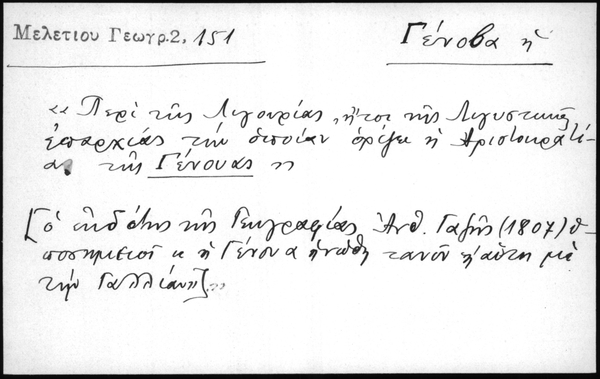 Μελετίου Γεωγρ. 2, 151
Γένοβα ἡ
«Περὶ τῆς Λιγουρίας, ἤτοι τῆς Λιγυστικῆς
ἐπαρχίας τὴν ὁποίαν ὁρίζει ἡ Ἀριστοκρατί-
α τῆς Γένουας»
[ὁ ἐκδότης τῆς Γεωγραφίας Ἀνθ. Γαζῆς (1807) ὑ-
ποσημειοῖ κ ἡ Γένουα ἡνώθη τανῦν ἡ αὐτη μὲ
τὴν Γαλλίαν»].